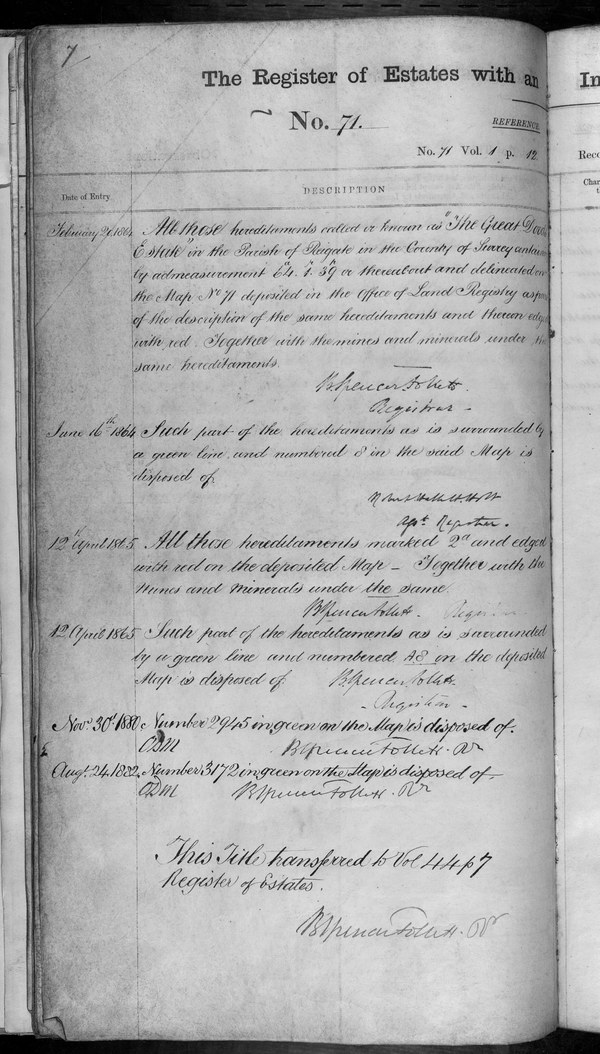 7
The Register of Estates with an
In
No. 71.
REFERENCE
No. 71 Vol. 1 p. 12
Reco
Char
t
Date of Entry
DESCRIPTION
February 26 1864 All those hereditaments called or known as "The Great Doods
Estate" in the Parish of Reigate in the County of Surrey containing
by admeasurement 64." 1." 39 or thereabout and delineated on
the Map No 71 deposited in the Office of Land Registry as part
of the description of the same hereditaments and thereon edged
with red. Together with the mines and minerals under the
same hereditaments.
B Spencer Follett
Registrar
June 16th 1864 Such part of the hereditaments as is surrounded by
a green line and numbered 8 in the said Map is
disposed of
Robert Hallett Holt
Asst. Registrar.
12th April 1865 All those hereditaments marked 2a and edged
with red on the deposited Map – Together with the
Mines and Minerals under the same.
B Spencer Follett. Registrar
12 April 1865 Such part of the hereditaments as is surrounded
by a green line and numbered A8 on the deposited
Map is disposed of B Spencer Follett.
- Registrar -
Novr 30th 1880. Number 2945 in green on the Map is disposed of.
B Spencer Follett. Rr
Augt. 24. 1882. Number 3172 in green on the Map is disposed of
B Spencer Follett. Rr
This Title transferred to Vol 44 p 7
Register of Estates.
B Spencer Follett. Rr